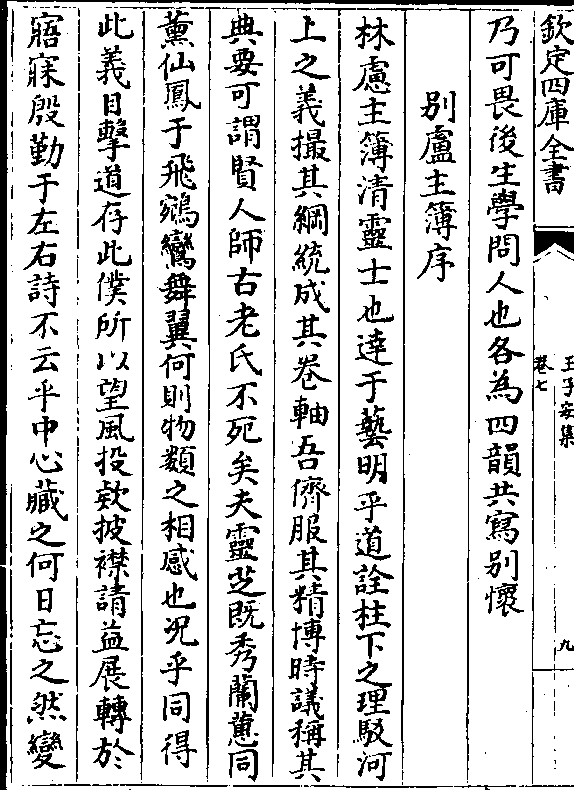 欽定四庫全書
王子安集
卷七
九
乃可畏後生學問人也各為四韻共寫别懷
别盧主簿序
林慮主簿清靈士也達于藝明乎道詮柱下之理駁河
上之義撮其綱統成其卷軸吾儕服其精博時議稱其
典要可謂賢人師古老氏不死矣夫靈芝既秀蘭蕙同
薰仙鳳于飛鵷鸞舞翼何則物類之相感也况乎同得
此義目擊道存此僕所以望風投欵披襟請益展轉於
寤寐殷勤于左右詩不云乎中心藏之何日忘之然變